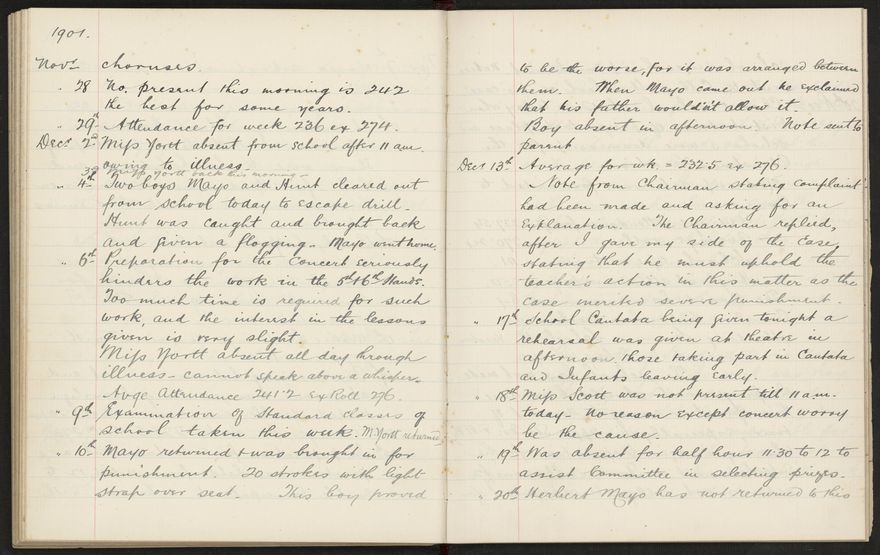 1901.
Novr choruses.
" 28 No. present this morning is 242
the best for some years.
" 29th Attendance for week 236 ex 274.
Decr 2nd Miss Yortt absent from school after 11 am.
owing to illness.
3rd Miss Yortt back this morning -
" 4th Two boys Mayo and Hunt cleared out
from school today to escape drill.
Hunt was caught and brought back
and given a flogging - Mayo went home.
" 6th Preparation for the Concert seriously
hinders the work in the 5th & 6th Stands.
Too much time is required for such
work, and the interest in the lessons
given is very slight.
Miss Yortt absent all day through
illness - cannot speak above a whisper.
Avge Attendance 241.2 ex Roll 276.
" 9th Examination of Standard classes of
school taken this week. M. Yortt returned
" 10th Mayo returned & was brought in for
punishment. 20 strokes with light
strap over seat. This boy proved
to be the worse, for it was arranged between
them. When Mayo came out he exclaimed
that his father wouldn't allow it.
Boy absent in afternoon. Note sent to
parent
Decr 13th Average for wk = 232.5 ex 276.
Note from Chairman stating complaint
had been made and asking for an
explanation. The Chairman replied,
after I gave my side of the case,
stating that he must uphold the
teacher's action in this matter as the
case merited severe punishment.
" 17th School Cantata being given tonight a
rehearsal was given at theatre in
afternoon, those taking part in Cantata
and Infants leaving early.
" 18th Miss Scott was not present till 11 am.
today - no reason except concert worry
be the cause.
" 19th Was absent for half hour 11.30 to 12 to
assist Committee in selecting prizes.
" 20th Herbert Mayo has not returned to this